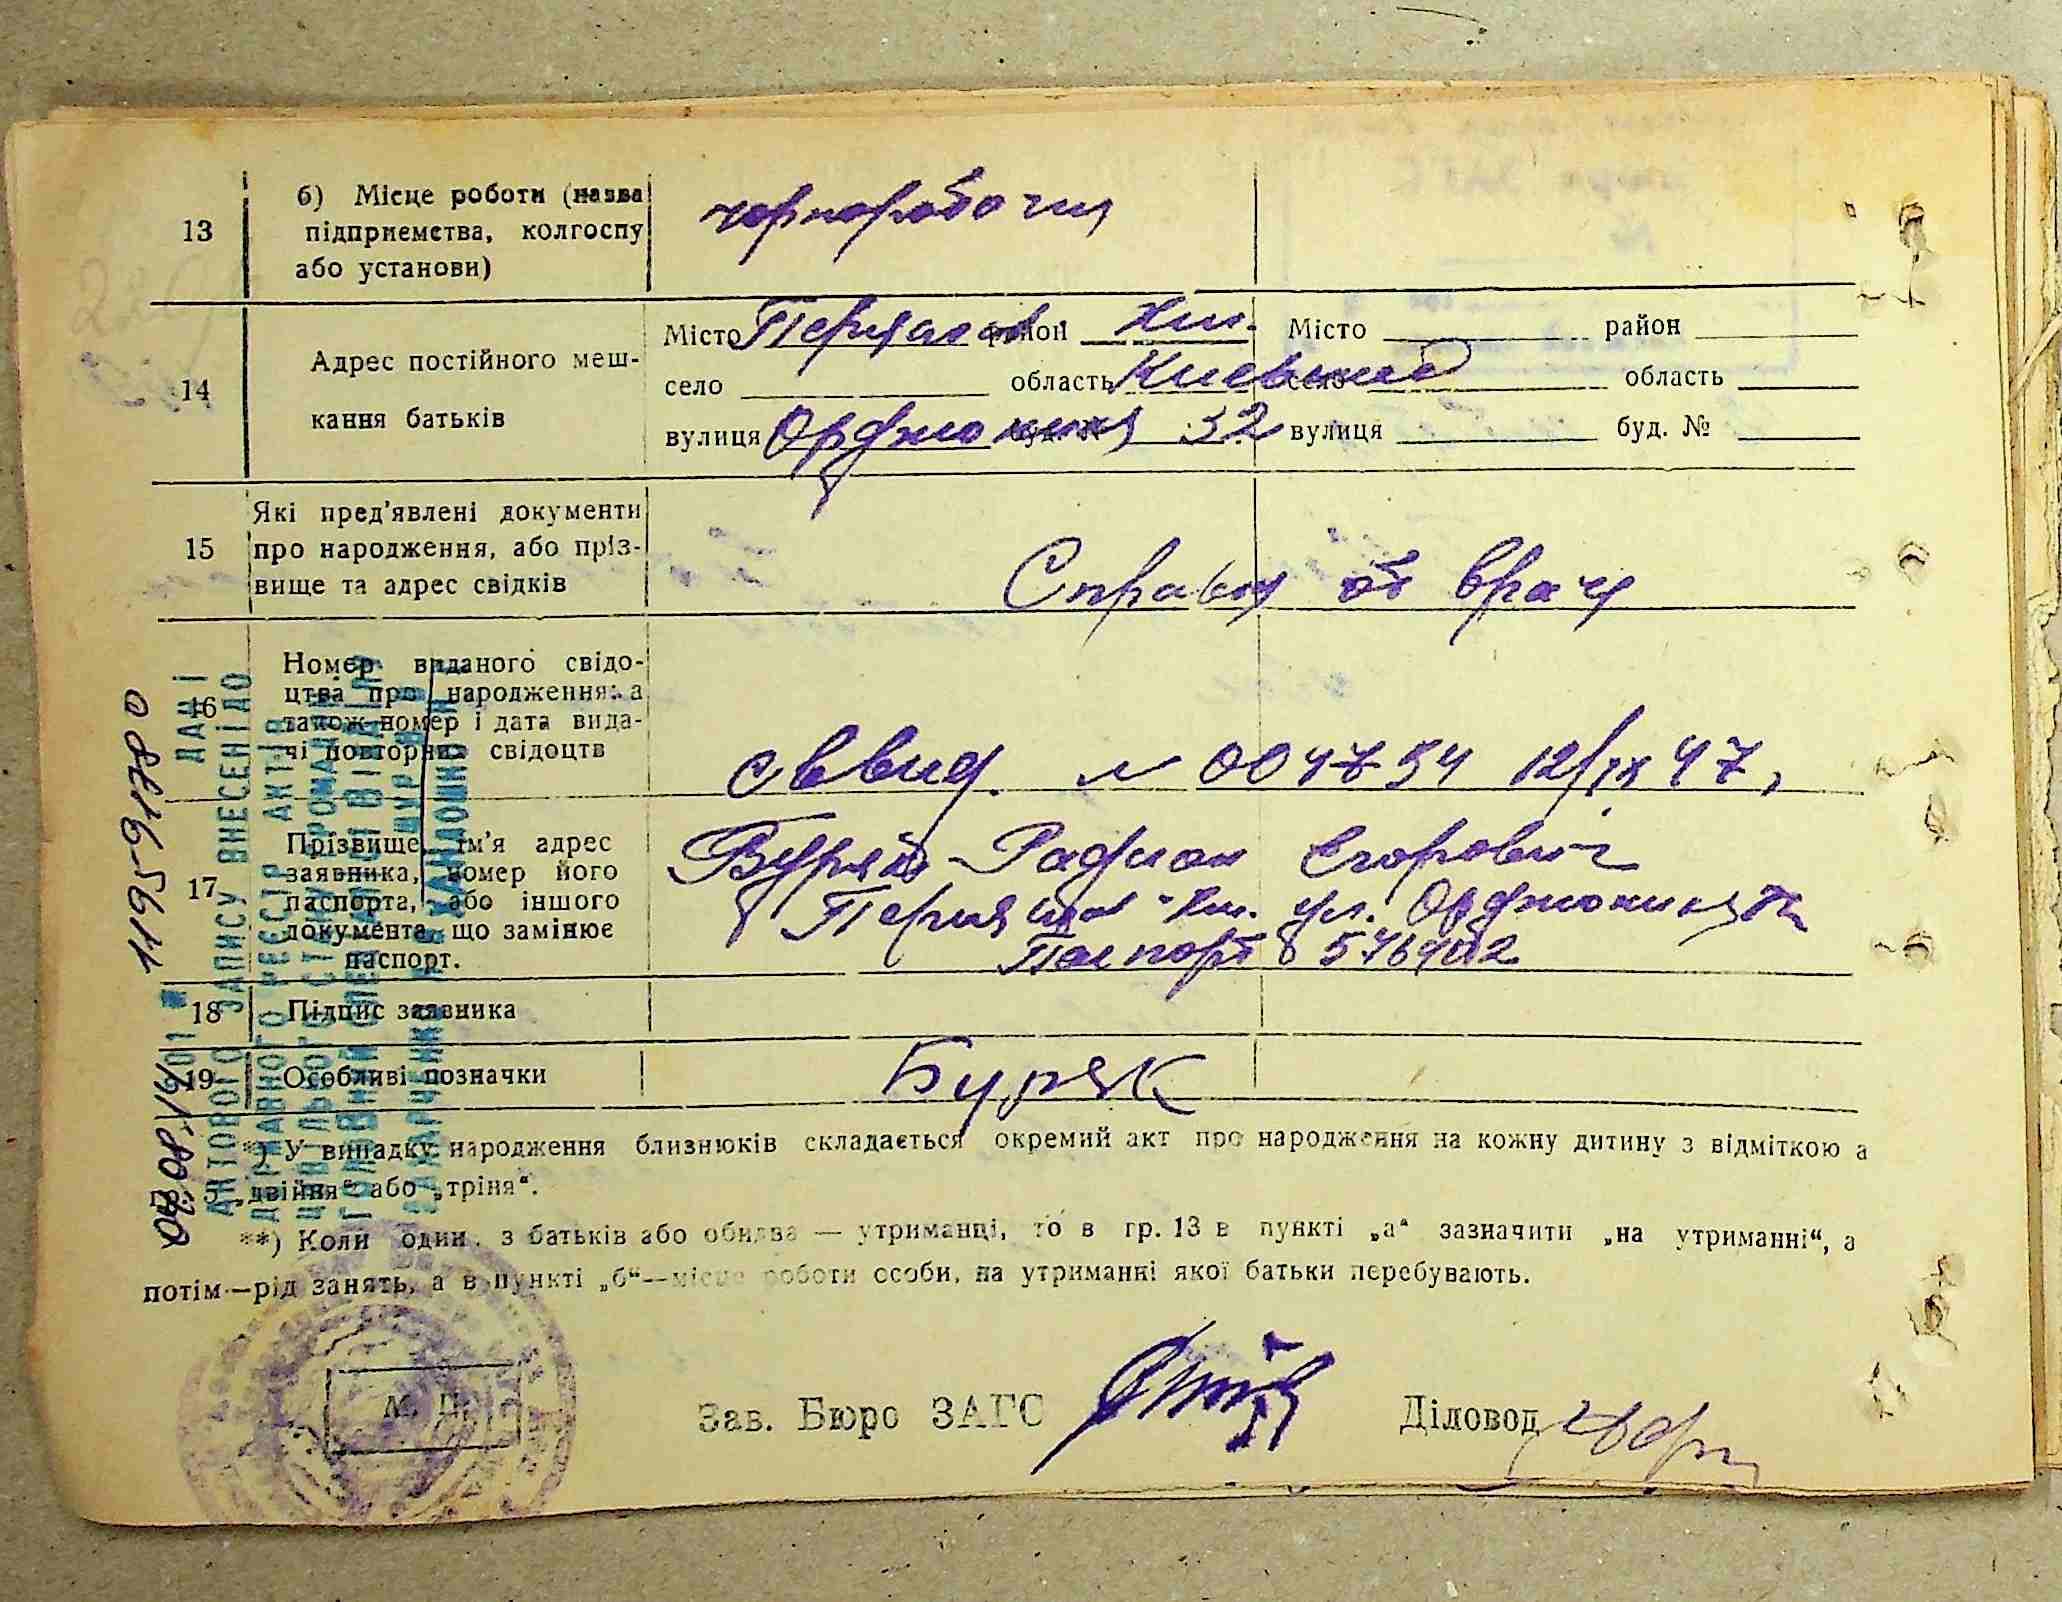 13
б) Місце роботи (назва
підприємства, колгоспу
або установи)
чорноробочи
14
Адрес постійного меш-
кання батьків
Місто район Хм. Місто район
село область Киевская село область
вулиця Орджоники 32 вулиця буд. №
15
Які пред'явлені документи
про народження, або пріз-
вище та адрес свідків
Справка от врача
16
Номер виданого свідо-
цтва про народження: а
також номер і дата вида-
чі повторних свідоцтв
свид. № 12/IX 47
17
Прізвище, ім'я адрес
заявника, номер його
паспорта, або іншого
документа, що замінює
паспорт.
Буряк Радион Егорович
Хм. ул. Орджоники
Паспорт
18 Підпис заявника
19 Особливі позначки
Буряк
*) У випадку народження близнюків складається окремий акт про народження на кожну дитину з відміткою а
гр. 5 „двійня“ або „тріня“.
**) Коли один з батьків або обидва — утриманці, то в гр. 13 в пункті „а“ зазначити „на утриманні“, а
потім—рід занять, а в пункті „б“—місце роботи особи, на утриманні якої батьки перебувають.
М. П.
Зав. Бюро ЗАГС Діловод
ДАНІ
АКТОВОГО ЗАПИСУ ВНЕСЕНІ ДО
ДЕРЖАВНОГО РЕЄСТРУ АКТІВ
ЦИВІЛЬНОГО СТАНУ ГРОМАДЯН